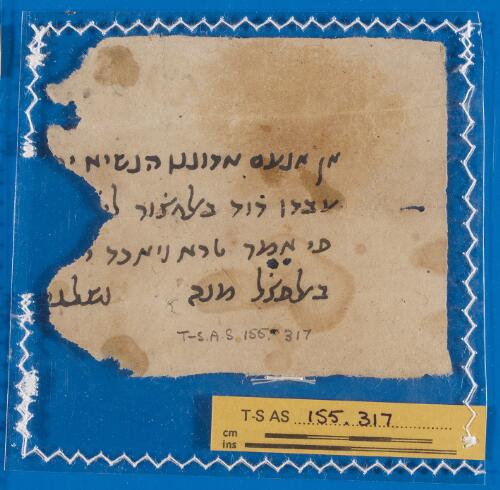 אן אנעם אדוננו הנשיא
עבדו דוד באלחצור
פי אמר טרא ויאכד
באלפצל מנה
T-S.A.S. 155.317
T-S AS 155.317
cm
ins